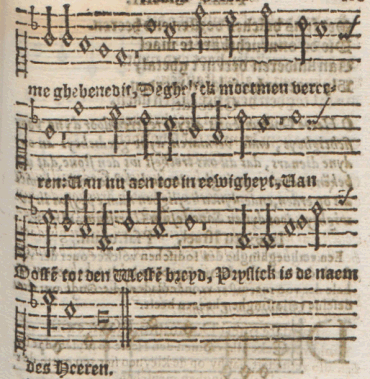 me ghebenedit, Deghelick moetmen veree-
ren: Uan nu aen tot in eewigheyt, Uan
Oostē tot den Westē breyd, Pryslick is de naem
des Heeren.